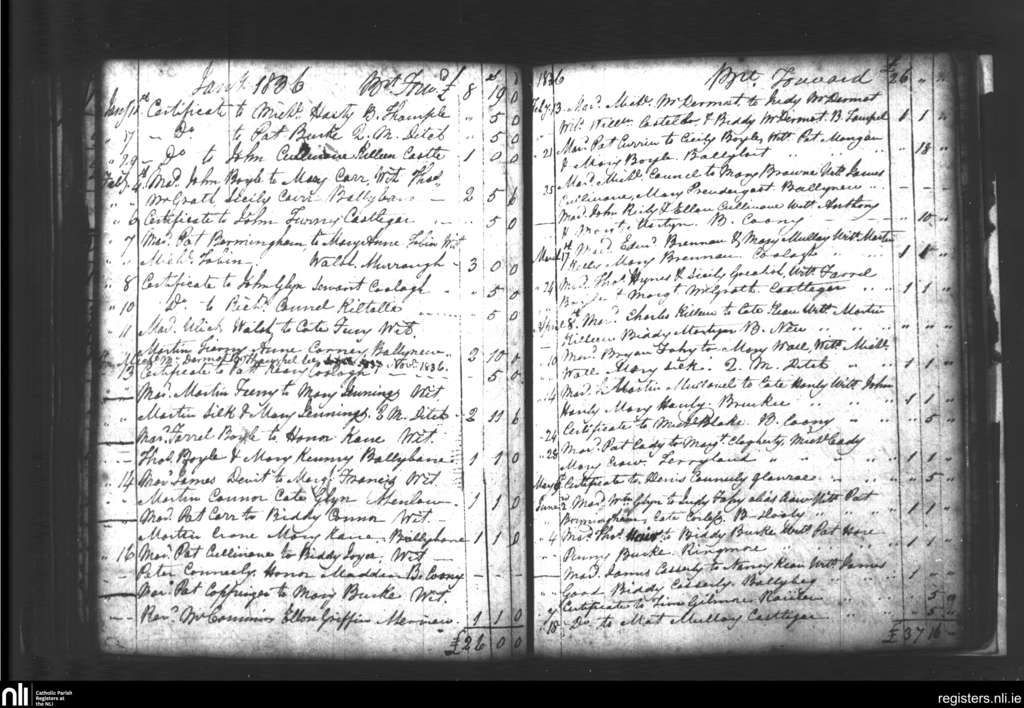 Jany 1836 Bt. Forwd £ 8 19 0
Jany 1st Certificate to Michl. Harty B. Thample " 5 0
" 7 Do to Pat Burke Q. M. Ditch " 5 0
" 29 Do to John Cullinane Killeen Castle 1 0 0
Feby 4 Mard. John Boyle to Mary Carr, Wit. Thos
McGrath Sicily Carr Ballybane 2 5 6
" 6 Certificate to John Furny Castlegar " 5 0
" 7 Mard. Pat Bermingham to Mary Anne Tobin Wit
" Michl. Tobin Walsh Murrough 3 0 0
" 8 Certificate to John Glyn Servant Coolagh " 5 0
" 10 Do to Richd. Connel Kiltulla " 5 0
" 11 Mard. Ulick Walsh to Cate Fury Wit.
Martin Furny Anne Conner Ballynew 2 10 0
Novr. 1836.
13 Certificate to Patt Coolagh " 5 0
Mard. Martin Furny to Mary Jennings Wit
" Martin Silk & Mary Jennings. Q M. Ditch 2 11 6
Mard. Farrel Boyle to Honor Kane Wit.
Thos. Boyle & Mary Kenny Ballybane 1 1 0
14 Mard. James Devit to Margt. Francis Wit
Martin Connor Cate Glyn Menlow 1 1 0
Mard. Pat Carr to Biddy Connor Wit.
Martin Crone Mary Kane Ballybane 1 1 0
" 16 Mard. Pat Cullinane to Biddy Joyce. Wit
Peter Conneely. Honor Madden B. Coony
Mard. Pat Coppinger to Mary Burke Wit.
Revd. Mr Commins Ellen Griffin Mervue. 1 1 0
£26 0 0
1836 Brt. Forward £26 " "
Feby. 13 Mard. Michl. McDermot to Judy McDermot
Wit. Willm. Costello & Biddy McDermot. B. Taupel 1 1 "
" 21 Mard. Pat Currin to Cecily Boyle, Witt. Pat Mangan
& Mary Boyle. Ballyloit " 18 "
25 Mard. Michl. Councel to Mary Browne Witt James
Cullinane, Mary Prendergast Ballynew
Mard. John Kirly & Ellen Cullinane Witt Anthony
& Margt. Martyn B. Coony " 10 "
March 17th Mard. Edmd. Brennan & Mary Mullay Witt. Martin
Kelly Mary Brennan Coolagh 1 1 "
" 24 Mard. Thos. Hynes & Sicily Witt. Farrel
Boyle & Margt. McGrath Castlegar 1 1 "
April 8. Mard. Charles Killeen to Cate Kean Witt Martin
Killeen Biddy Martyn B. New " " "
" 10 Mard. Bryan Fahy to Mary Wall, Witt. Michl.
Wall Mary Silk. Q. M. Ditch 1 1 "
14 Mard. Martin to Cate Hanly Witt John
Hanly Mary Hanly. Brucker 1 1 "
Certificate to Michl. Blake B. Coony " 5 "
" 24
" 28 Mard. Pat Cady to Margt. Clogherty, Michl Cady
Mary Crow Terryland 1 1 "
May 6th Certificate to Denis Connely Glanrae " 5 "
June 2d Mard. Wm Glyn to Judy Fahy alias Witt Pat
Bermingham, Cate Corless B. 1 1 "
" 4 Mard. Thos to Biddy Burke Witt Pat Hare
Penny Burke Ringmore 1 1 "
Mard. James Casserly to Nancy Kean Witt James
Good Biddy Casserly. Ballybeg 1 " "
9 Certificate to Tim Gilmore Roscam " 5 "
18 Do to Mat Mullay Castlegar " 5 "
£37 16
nli
Catholic Parish
Registers at
the NLI
registers.nli.ie